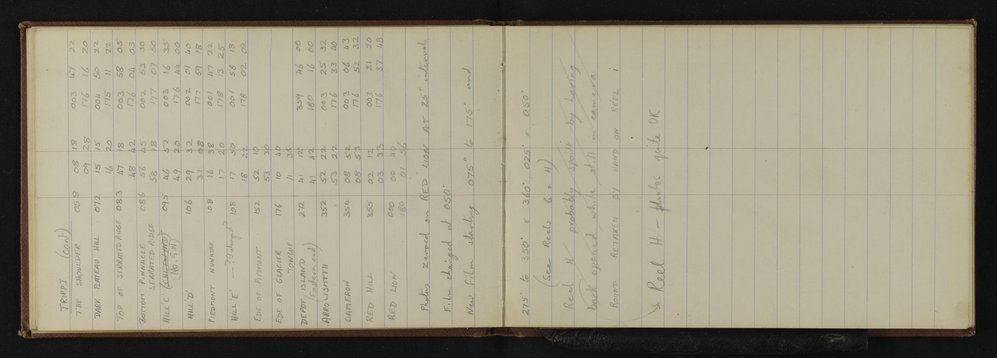 TRIPPI (cont)
THE SHOULDER 058 08 18 003 47 22
09 28 176 16 20
DARK PLATEAU HILL 072 15 15 004 50 22
16 20 175 11 22
TOP OF SERRATED RIDGE 083 47 18 003 58 05
48 42 176 04 03
BOTTOM PINNACLE SERRATED RIDGE 086 56 05 002 53 30
58 18 177 07 50
HILL 'C' 095 46 52 003 16 35
(No. 9.N) 49 20 176 44 00
HILL 'D' 106 29 32 002 01 40
31 08 177 59 18
PIEDMONT NUNATAK 108 16 38 001 47 22
17 20 178 13 25
HILL 'E' 108 17 50 001 58 18
18 22 178 02 02
EDGE OF PIEDMONT 152 52 10
53 30
EDGE OF GLACIER TONGUE 176 10 40
11 35
DEPOT ISLAND 272 41 12 359 46 00
(Eastern end) 41 42 180 16 00
ARROWSMITH 352 52 22 003 25 32
53 22 176 33 40
CAMERON 354 08 52 003 06 43
08 53 176 52 32
RED HILL 355 02 12 003 21 20
03 33 176 37 48
RED LION 000 00
180 01
Photos zeroed on RED LION AT 25° interval
Film changed at 050°
New film starting 075° to 175° and
275° to 350° & 360° 025° & 050°
(See Reels G & H)
Reel H probably spoilt by having
back opened while still in camera
ROUND RETAKEN BY HAND ON REEL I
→ Reel H - photos quite OK